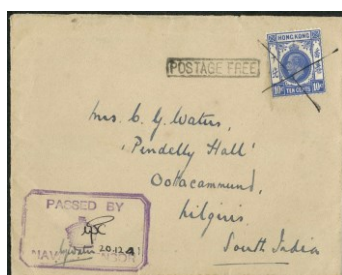 HONG KONG
10c TEN CENTS 10c
POSTAGE FREE
Mrs. C. G. Waters,
'Pendelly Hall'
Ootacammund,
Nilgiris.
South India
PASSED BY
NAVAL
20.12.41